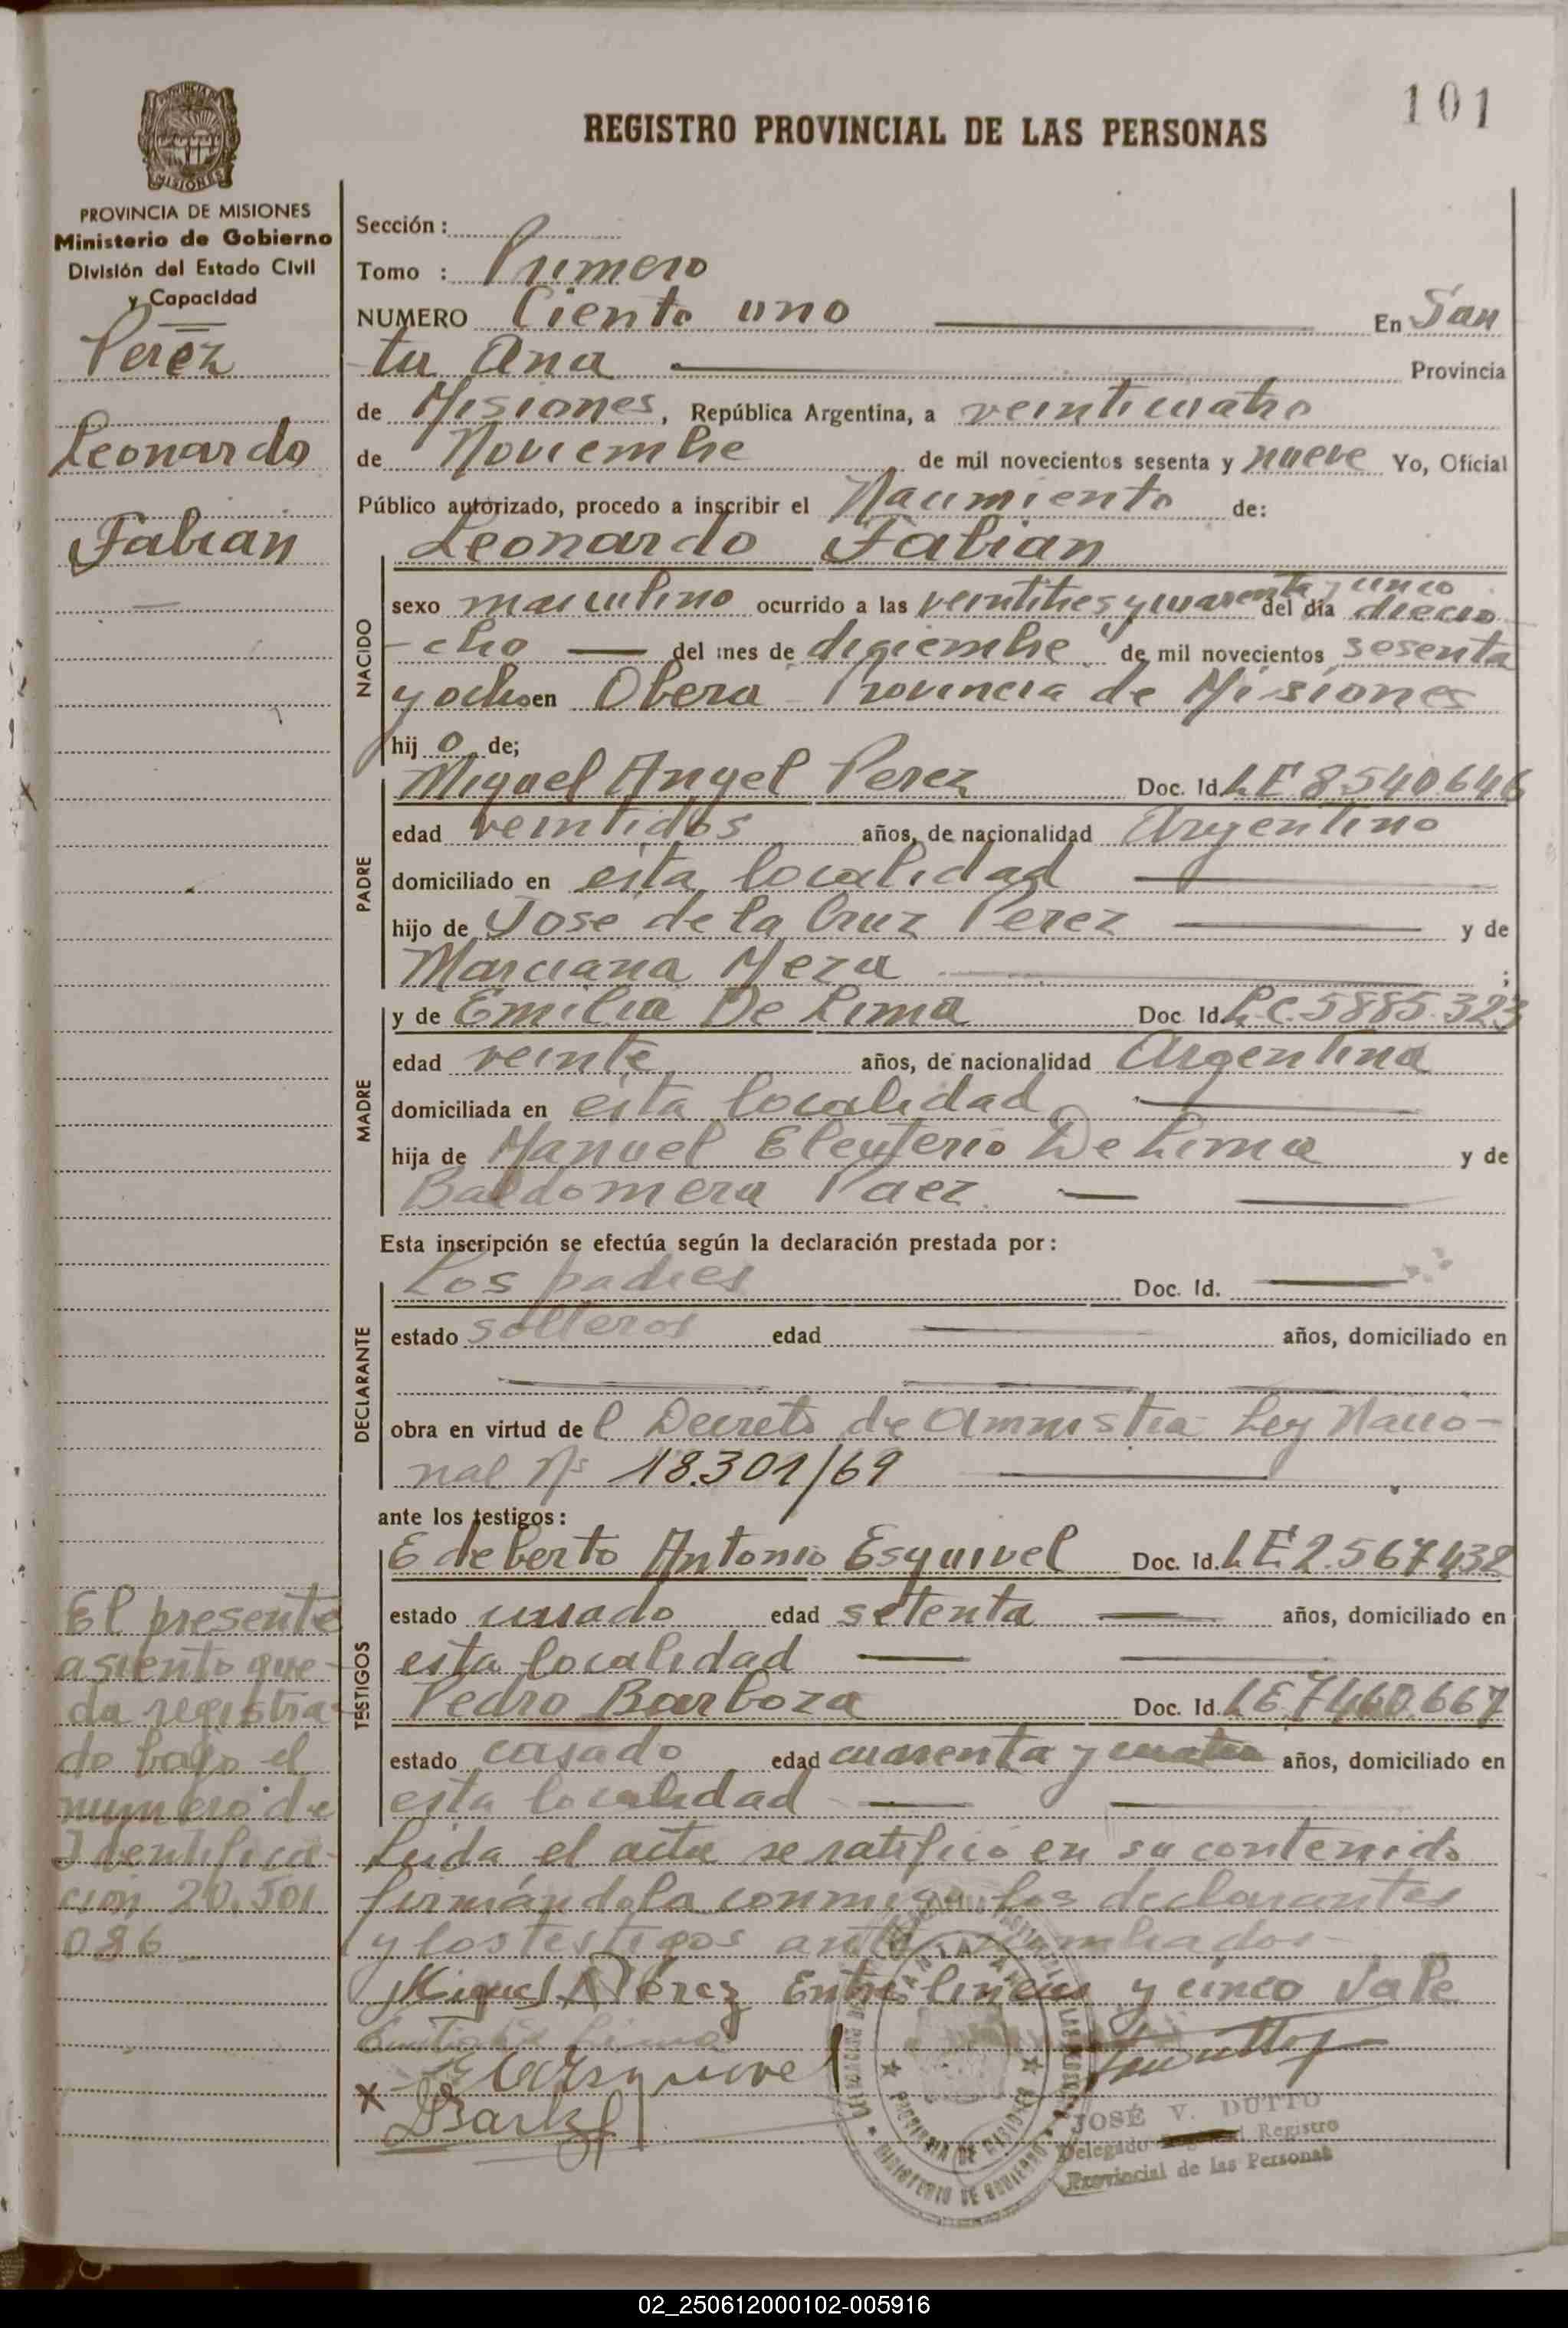 101
REGISTRO PROVINCIAL DE LAS PERSONAS
MISIONES
PROVINCIA DE MISIONES
Ministerio de Gobierno
División del Estado Civil
y Capacidad
Perez
Leonardo
Fabian
Sección :
Tomo : Primero
NUMERO Ciento uno En San
ta Ana Provincia
de Misiones, República Argentina, a veinticuatro
de Noviembre de mil novecientos sesenta y nueve Yo, Oficial
Público autorizado, procedo a inscribir el Nacimiento de:
Leonardo Fabian
NACIDO
sexo masculino ocurrido a las veintitres y cuarenta y cinco del día diecio
-cho del mes de diciembre de mil novecientos sesenta
y ocho en Obera - Provincia de Misiones
hij o de;
PADRE
Miguel Angel Perez Doc. Id. LE 8.540.646
edad veintidos años, de nacionalidad Argentino
domiciliado en esta localidad
hijo de Jose de la Cruz Perez y de
Marciana Meza ;
MADRE
y de Emilia De Lima Doc Id. L.C. 5885.323
edad veinte años, de nacionalidad Argentina
domiciliada en esta localidad
hija de Manuel Eleuterio De Lima y de
Baldomera Paez
Esta inscripción se efectúa según la declaración prestada por :
DECLARANTE
Los padres Doc. Id.
estado solteros edad años, domiciliado en
obra en virtud de l Decreto de Amnistia Ley Nacio-
nal Nº 18.301/69
ante los testigos :
TESTIGOS
Edelberto Antonio Esquivel Doc. Id. LE 2.567.432
estado casado edad setenta años, domiciliado en
esta localidad
Pedro Barboza Doc. Id. LE 7.460.667
estado casado edad cuarenta y cuatro años, domiciliado en
esta localidad
Leida el acta se ratificó en su contenido
firmándola conmigo los declarantes
y los testigos antes nombrados-
Miguel A Pérez Entre lineas y cinco Vale
El presente
asiento que-
da registra-
do bajo el
numero de
Identifica-
cion 20.501.
086
Esquivel
X
PROVINCIA DE MISIONES
MINISTERIO DE GOBIERNO
JOSÉ V. DUTTO
Delegado Registro
Provincial de las Personas
02_250612000102-005916